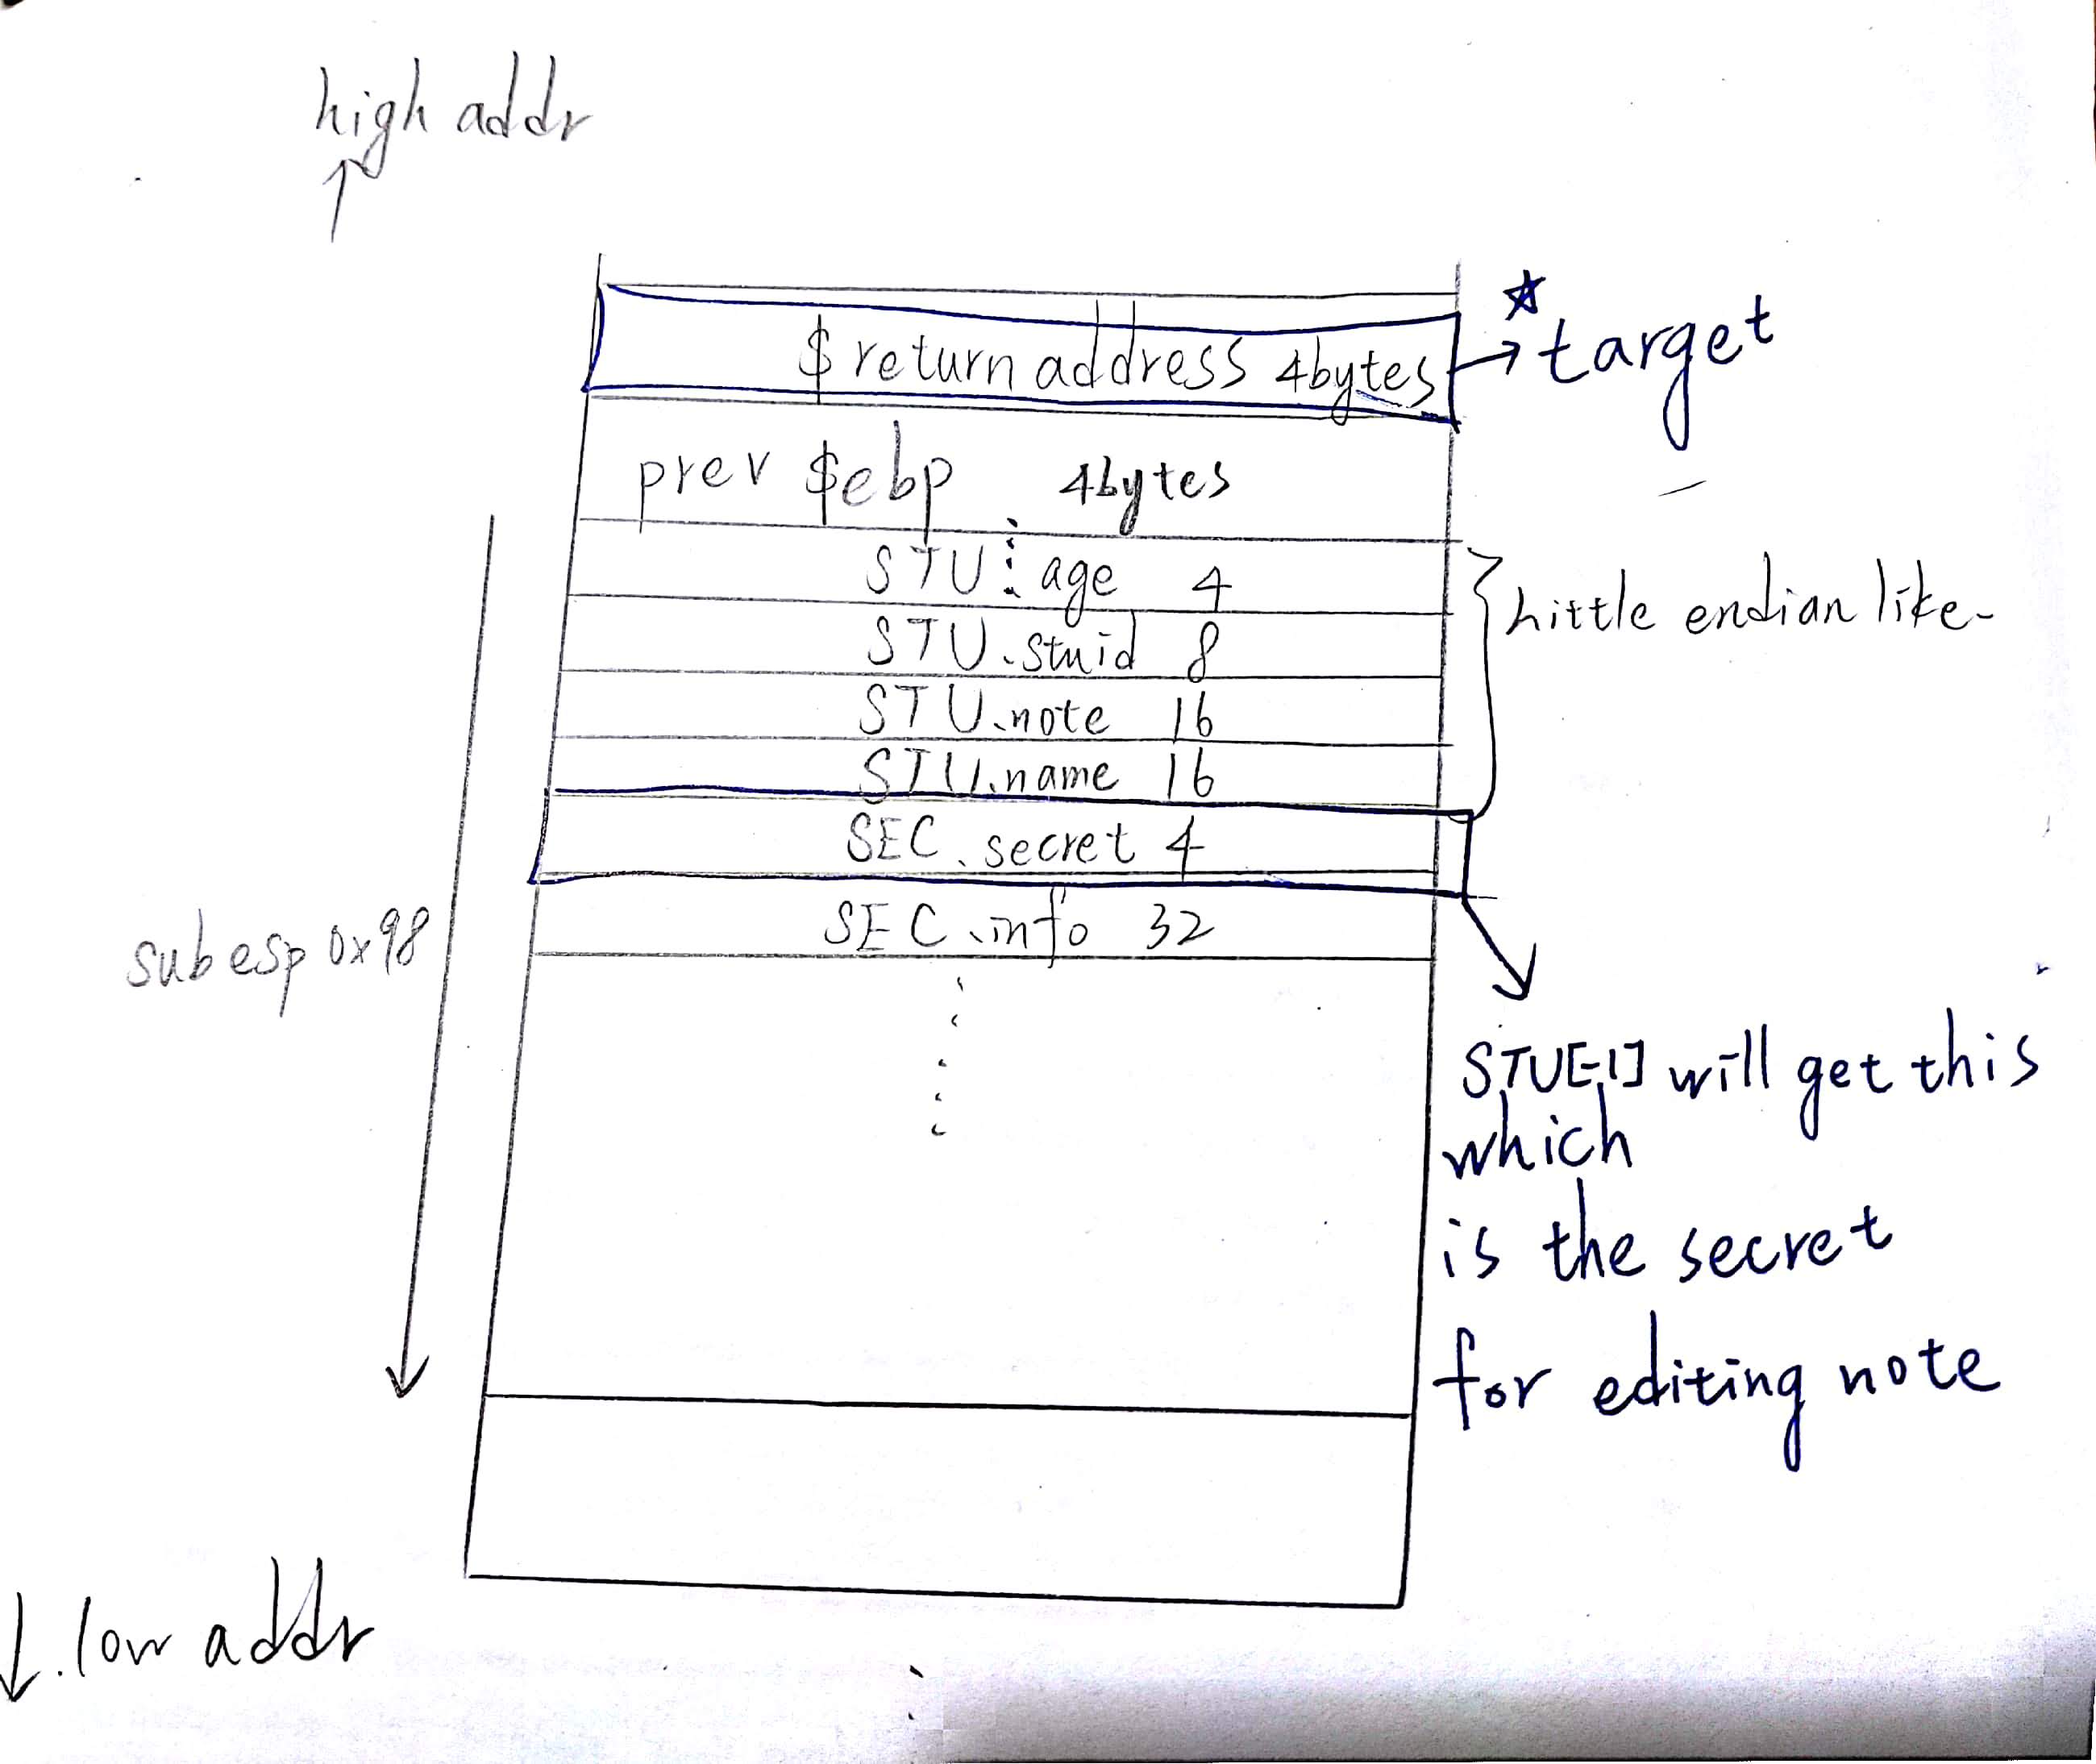 high addr
$ return address 4bytes
target
prev $ebp 4bytes
STU. age 4
hittle endian like
STU.stuid 8
STU.note 16
STU.name 16
SEC.secret 4
SEC.info 32
sub esp 0x98
STU[-1] will get this
which
is the secret
for editing note
low addr